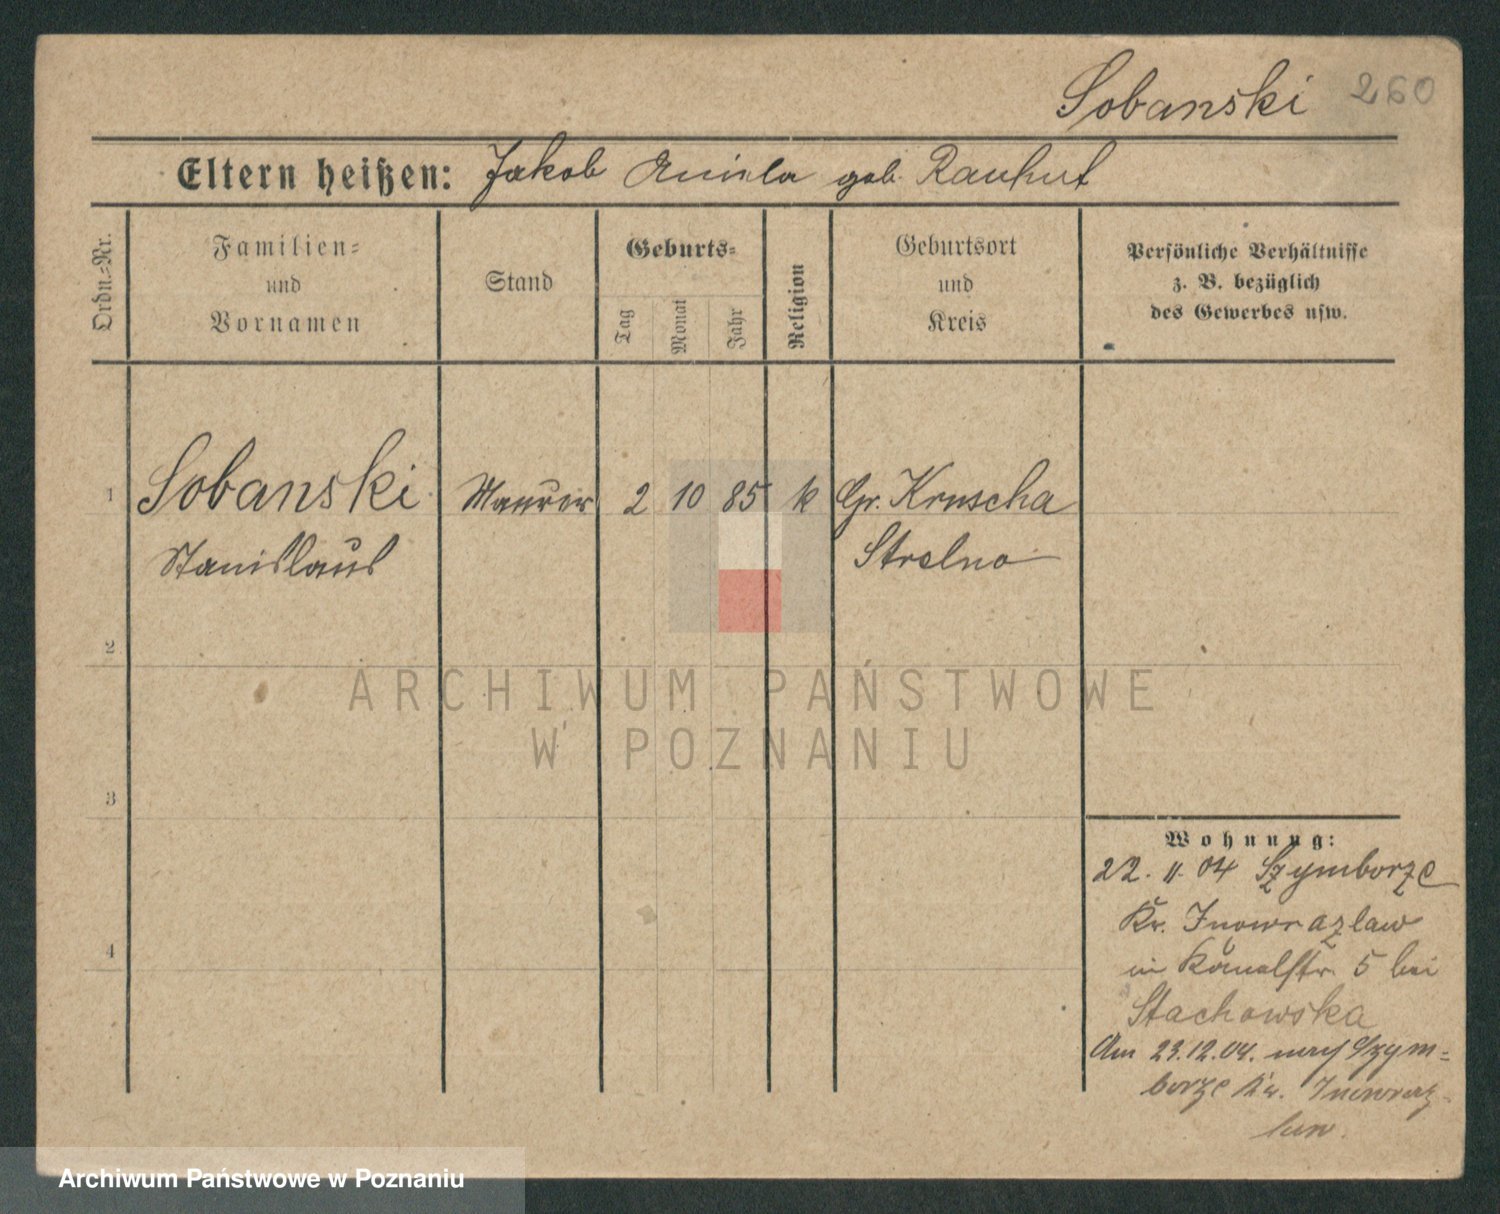 Sobanski 260
Eltern heißen: Jakob Aniela geb. Rauhut
Ordn.=Nr.
Familien=
und
Vornamen
Stand
Geburts=
Tag
Monat
Jahr
Religion
Geburtsort
und
Kreis
Persönliche Verhältnisse
z. B. bezüglich
des Gewerbes usw.
1 Sobanski Maurer 2 10 85 k Gr. Kruscha
Stanislaus Strelno
2
3
4
Wohnung:
22. 11. 04 Szymborze
Kr. Inowrazlaw
in Kanalstr. 5 bei
Stachowska
Am 23.12.04. nach Szym=
borze Kr. Inowraz-
law.
ARCHIWUM PAŃSTWOWE
W POZNANIU
Archiwum Państwowe w Poznaniu